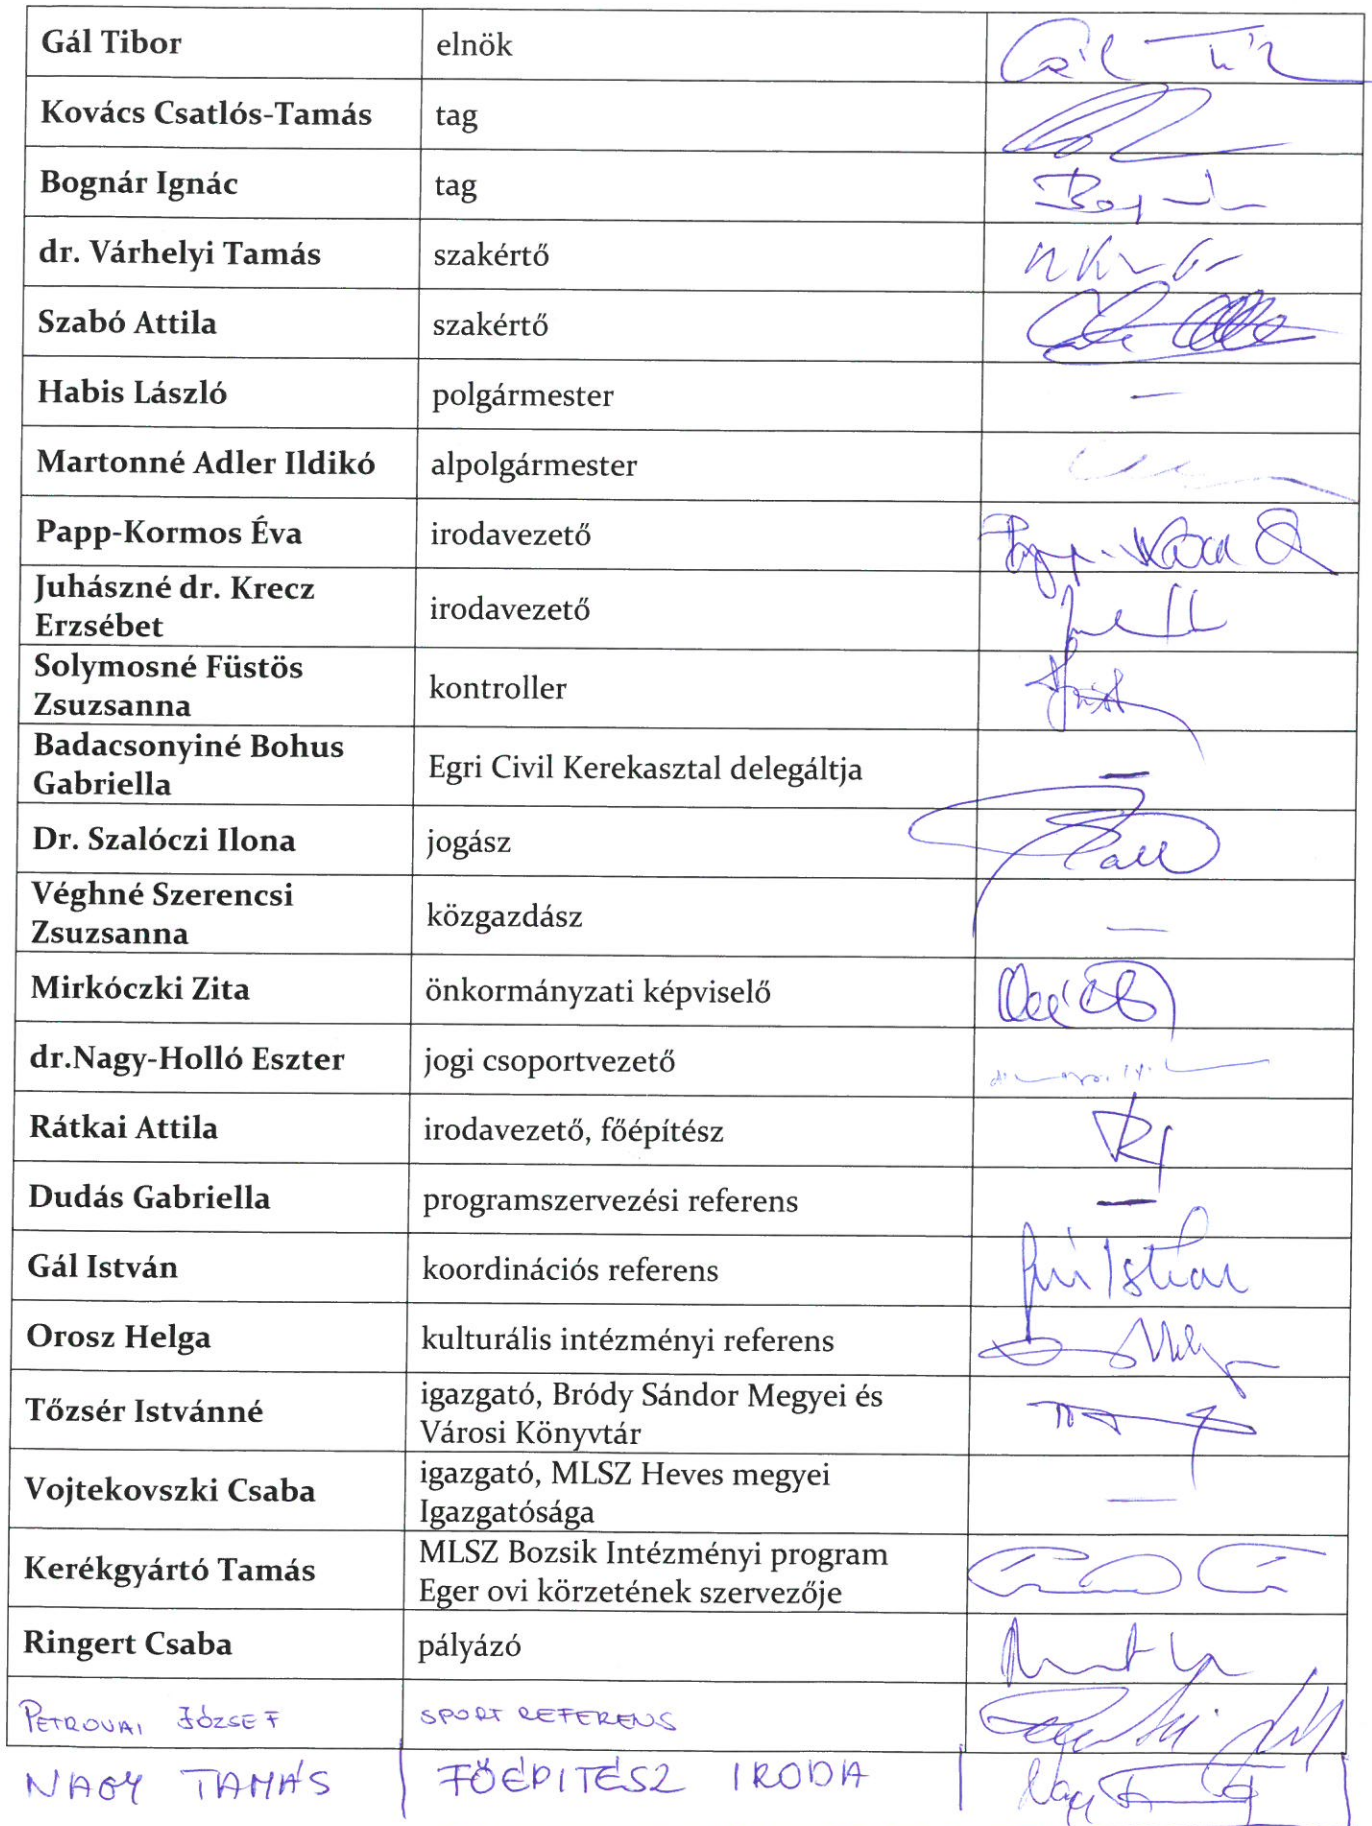 Gál Tibor elnök
Kovács Csatlós-Tamás tag
Bognár Ignác tag
dr. Várhelyi Tamás szakértő
Szabó Attila szakértő
Habis László polgármester —
Martonné Adler Ildikó alpolgármester
Papp-Kormos Éva irodavezető
Juhászné dr. Krecz
Erzsébet irodavezető
Solymosné Füstös
Zsuzsanna kontroller
Badacsonyiné Bohus
Gabriella Egri Civil Kerekasztal delegáltja —
Dr. Szalóczi Ilona jogász
Véghné Szerencsi
Zsuzsanna közgazdász —
Mirkóczki Zita önkormányzati képviselő
dr.Nagy-Holló Eszter jogi csoportvezető
Rátkai Attila irodavezető, főépítész
Dudás Gabriella programszervezési referens —
Gál István koordinációs referens
Orosz Helga kulturális intézményi referens
Tőzsér Istvánné igazgató, Bródy Sándor Megyei és
Városi Könyvtár
Vojtekovszki Csaba igazgató, MLSZ Heves megyei
Igazgatósága —
Kerékgyártó Tamás MLSZ Bozsik Intézményi program
Eger ovi körzetének szervezője
Ringert Csaba pályázó
PETROVAI JÓZSEF SPORT REFERENS
NAGY TAMÁS FŐÉPITÉSZ IRODA